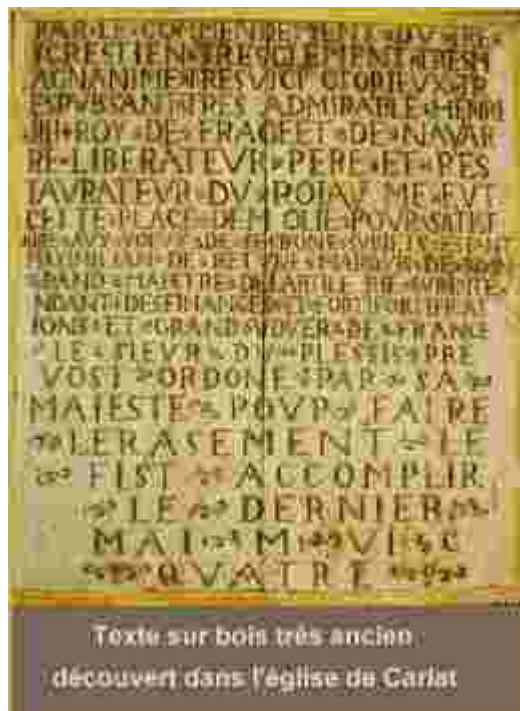 PAR LE COMMENDEMENT DV
CRESTIEN TRESCLEMENT TRESM
AGNANIME TRESVICTORIEVX TR
ESPVISANT TRES ADMIRABLE HENRI
IIII ROY DE FRACE ET DE NAVAR
RE LIBERATEVR PERE ET RES
TAVRATEVR DV ROIAVME FVT
CETTE PLACE DEMOLIE POVR SATISF
DE
MAXIMILIAN DE
GRAND MAISTRE DE
NDANT DES FINANCES ET
IONS ET GRAND DE FRANCE
LE SIEVR DV PLESSIS PRE
VOST ORDONE PAR SA
MAIESTE POVR FAIRE
LE RASEMENT LE
FIST ACCOMPLIR
LE DERNIER
MAI M VI C
QVATRE
Texte sur bois très ancien
découvert dans l'église de Carlat